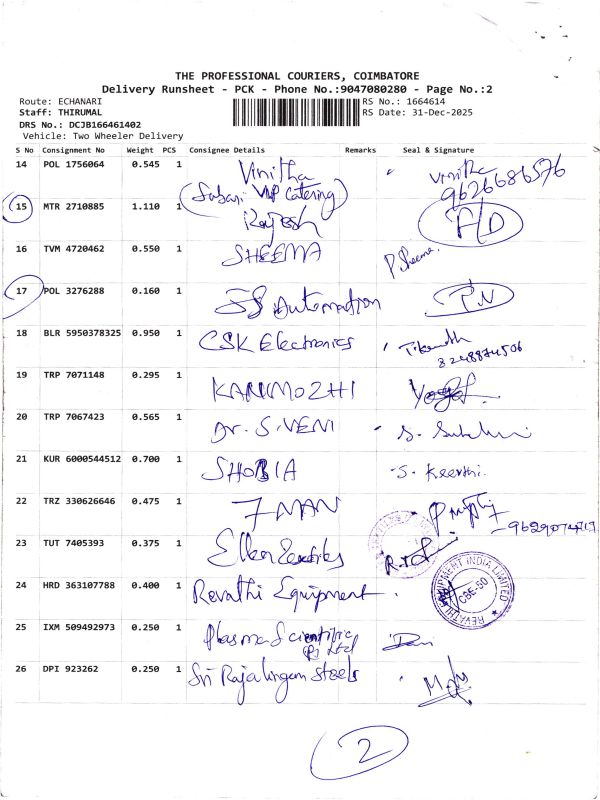 THE PROFESSIONAL COURIERS, COIMBATORE
Delivery Runsheet - PCK - Phone No.:9047080280 - Page No.:2
Route: ECHANARI RS No.: 1664614
Staff: THIRUMAL RS Date: 31-Dec-2025
DRS No.: DCJB166461402
Vehicle: Two Wheeler Delivery
S No Consignment No Weight PCS Consignee Details Remarks Seal & Signature
14 POL 1756064 0.545 1 Vinitha vinitha
(Sabari VVIP Catering) 9626686576
15 MTR 2710885 1.110 1 Rajesh A/D
16 TVM 4720462 0.550 1 SHEEMA P. Sheema
17 POL 3276288 0.160 1 JS Automation P.N
18 BLR 5950378325 0.950 1 CSK Electronics
8248874506
19 TRP 7071148 0.295 1 KANIMOZHI
20 TRP 7067423 0.565 1 Dr. S. VENI
21 KUR 6000544512 0.700 1 SHOBIA S. Keerthi.
22 TRZ 330626646 0.475 1 7 MAN
23 TUT 7405393 0.375 1
24 HRD 363107788 0.400 1 Revathi Equipment REVATHI EQUIPMENT INDIA LIMITED CBE-50
25 IXM 509492973 0.250 1 Plasma Scientific
P) Ltd
26 DPI 923262 0.250 1 Sri Rajalingam Steels
2